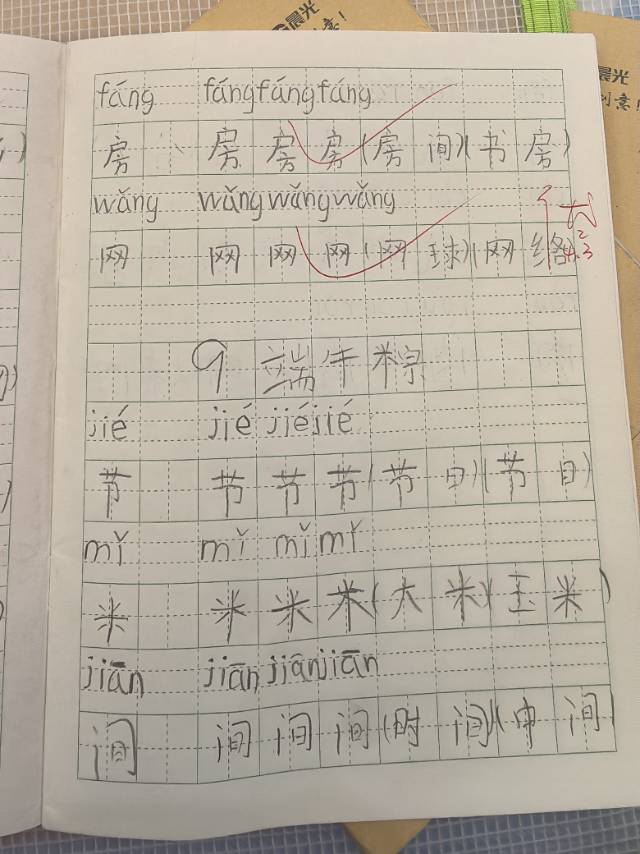 晨光
晨光
创意！
fáng fáng fáng fáng
房 房 房 房 (房 间) (书 房)
wǎng wǎng wǎng wǎng
网 网 网 网 (网 球) (网 络)
优
4.23
9 端午粽
jié jié jié jié
节 节 节 节 (节 日) (节 目)
mǐ mǐ mǐ mǐ
米 米 米 米 (大 米) (玉 米)
jiān jiān jiān jiān
间 间 间 间 (时 间) (中 间)